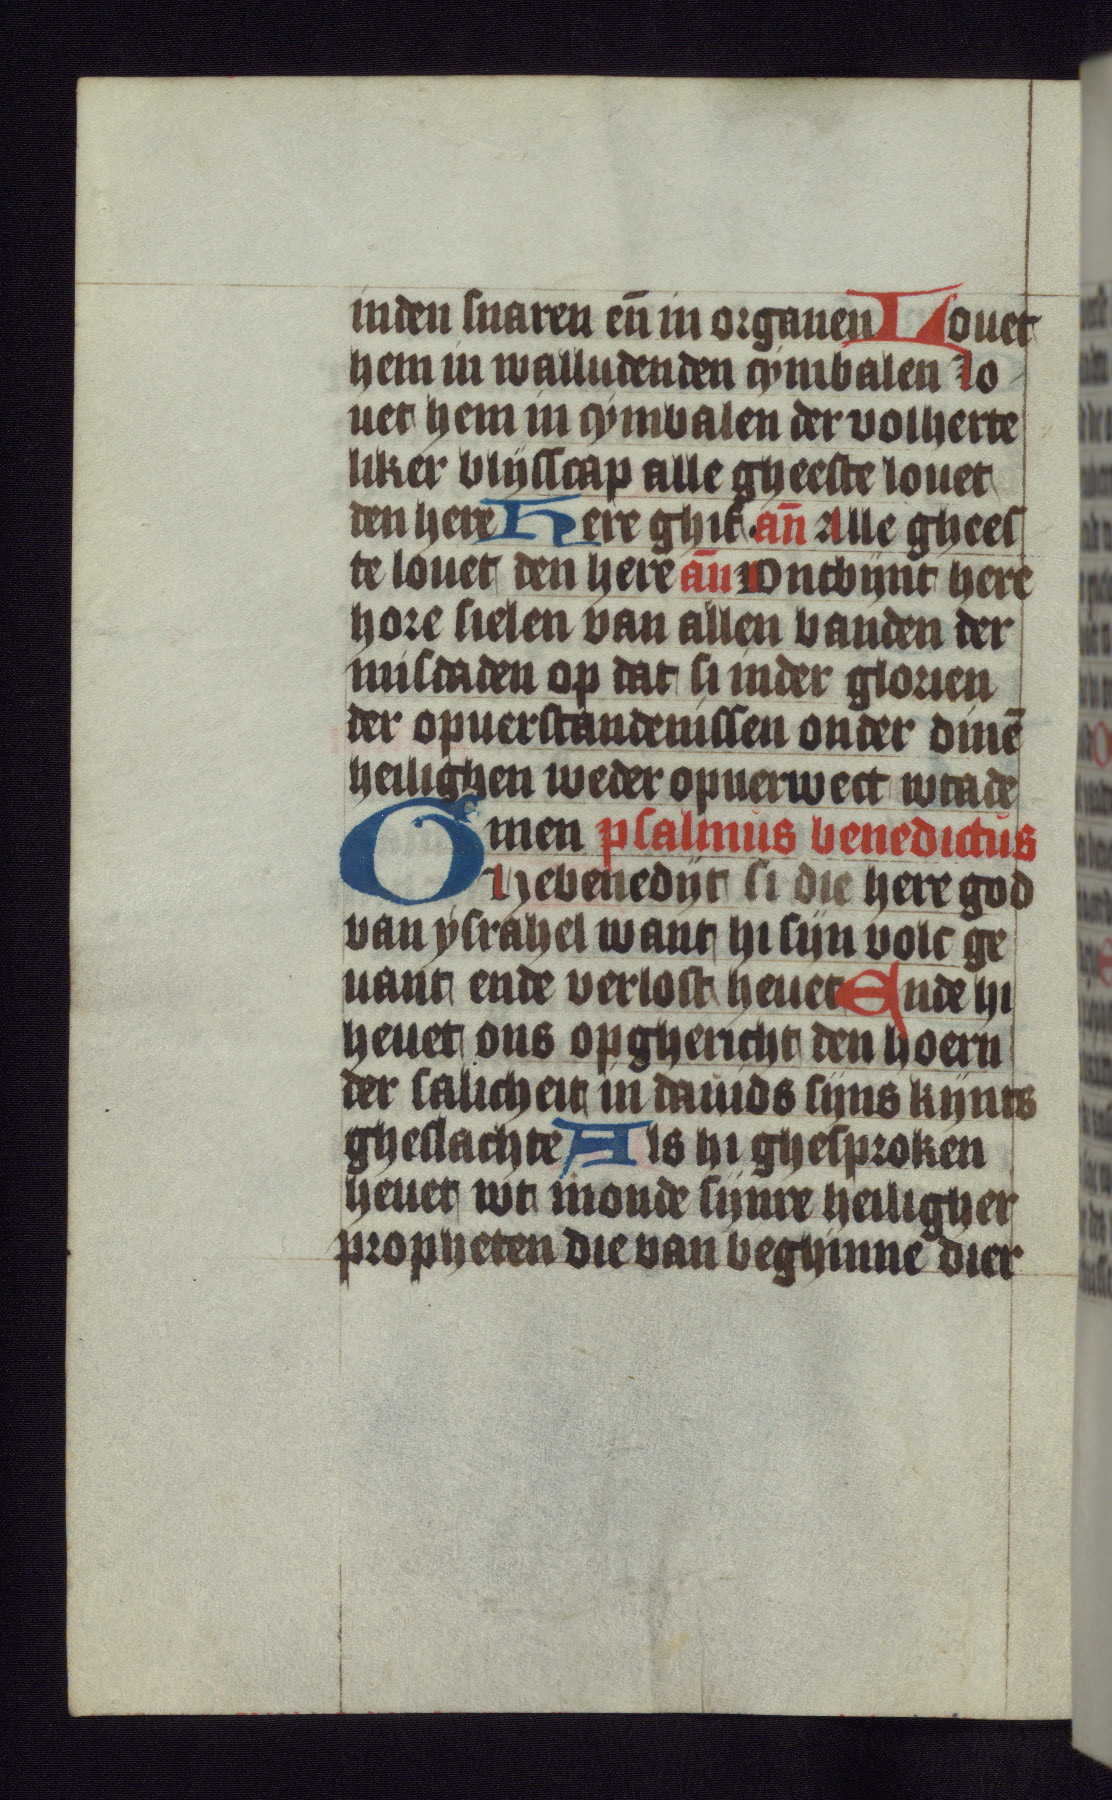 inden snaren en̄ in organen Louet
hem in walludenden cymbalen lo
uet hem in cymbalen der volherte
liker blijsscap alle gheeste louet
den here Here ghif an̄ Alle ghees
te louet den here an̄ Ontbijnt here
hore sielen van allen banden der
misdaden op dat si inder glorien
der opuerstandenissen onder dinē
heilighen weder opuerwect wtade
men psalmus benedictus
Ghebenedijt si die here god
van ysrahel want hi sijn volc ge
uant ende verlost heuet Ende hi
heuet ons opghericht den hoern
der salicheit in dauids sijns kijnts
gheslachte Als hi ghesproken
heuet wt monde sijnre heiligher
propheten die van beghinne dier